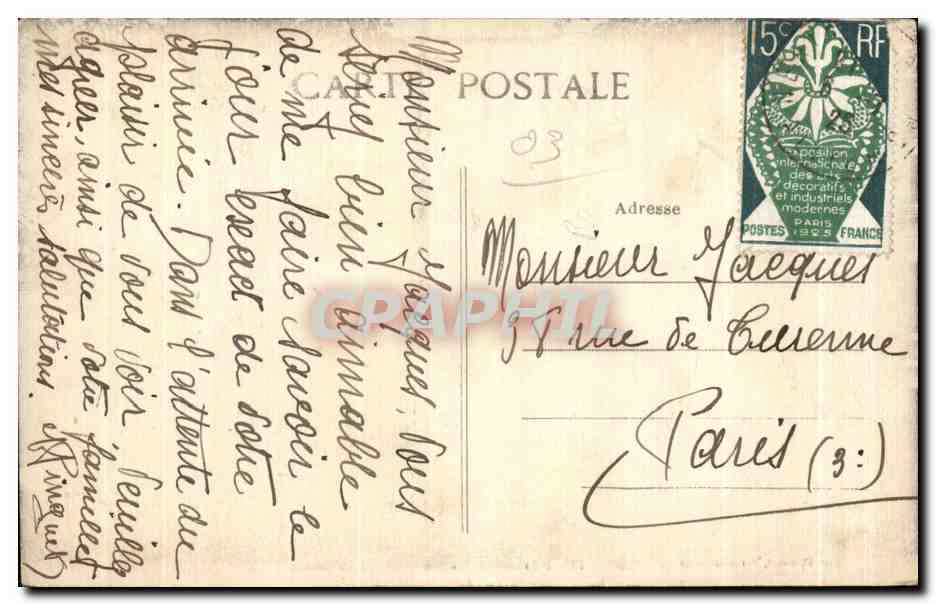 CARTE POSTALE
Monsieur Jacques, Vous
seriez bien aimable
de me faire savoir le
jour exact de votre
arrivée. Dans l'attente du
plaisir de vous voir, veuillez
agréer, ainsi que votre famille,
mes sincères salutations.
03
Adresse
Monsieur Jacques
38 rue de Turenne
Paris (3e)
15c RF
25
exposition
internationale
des arts
decoratifs
et industriels
modernes
PARIS
1925
POSTES FRANCE
CPAPHIL